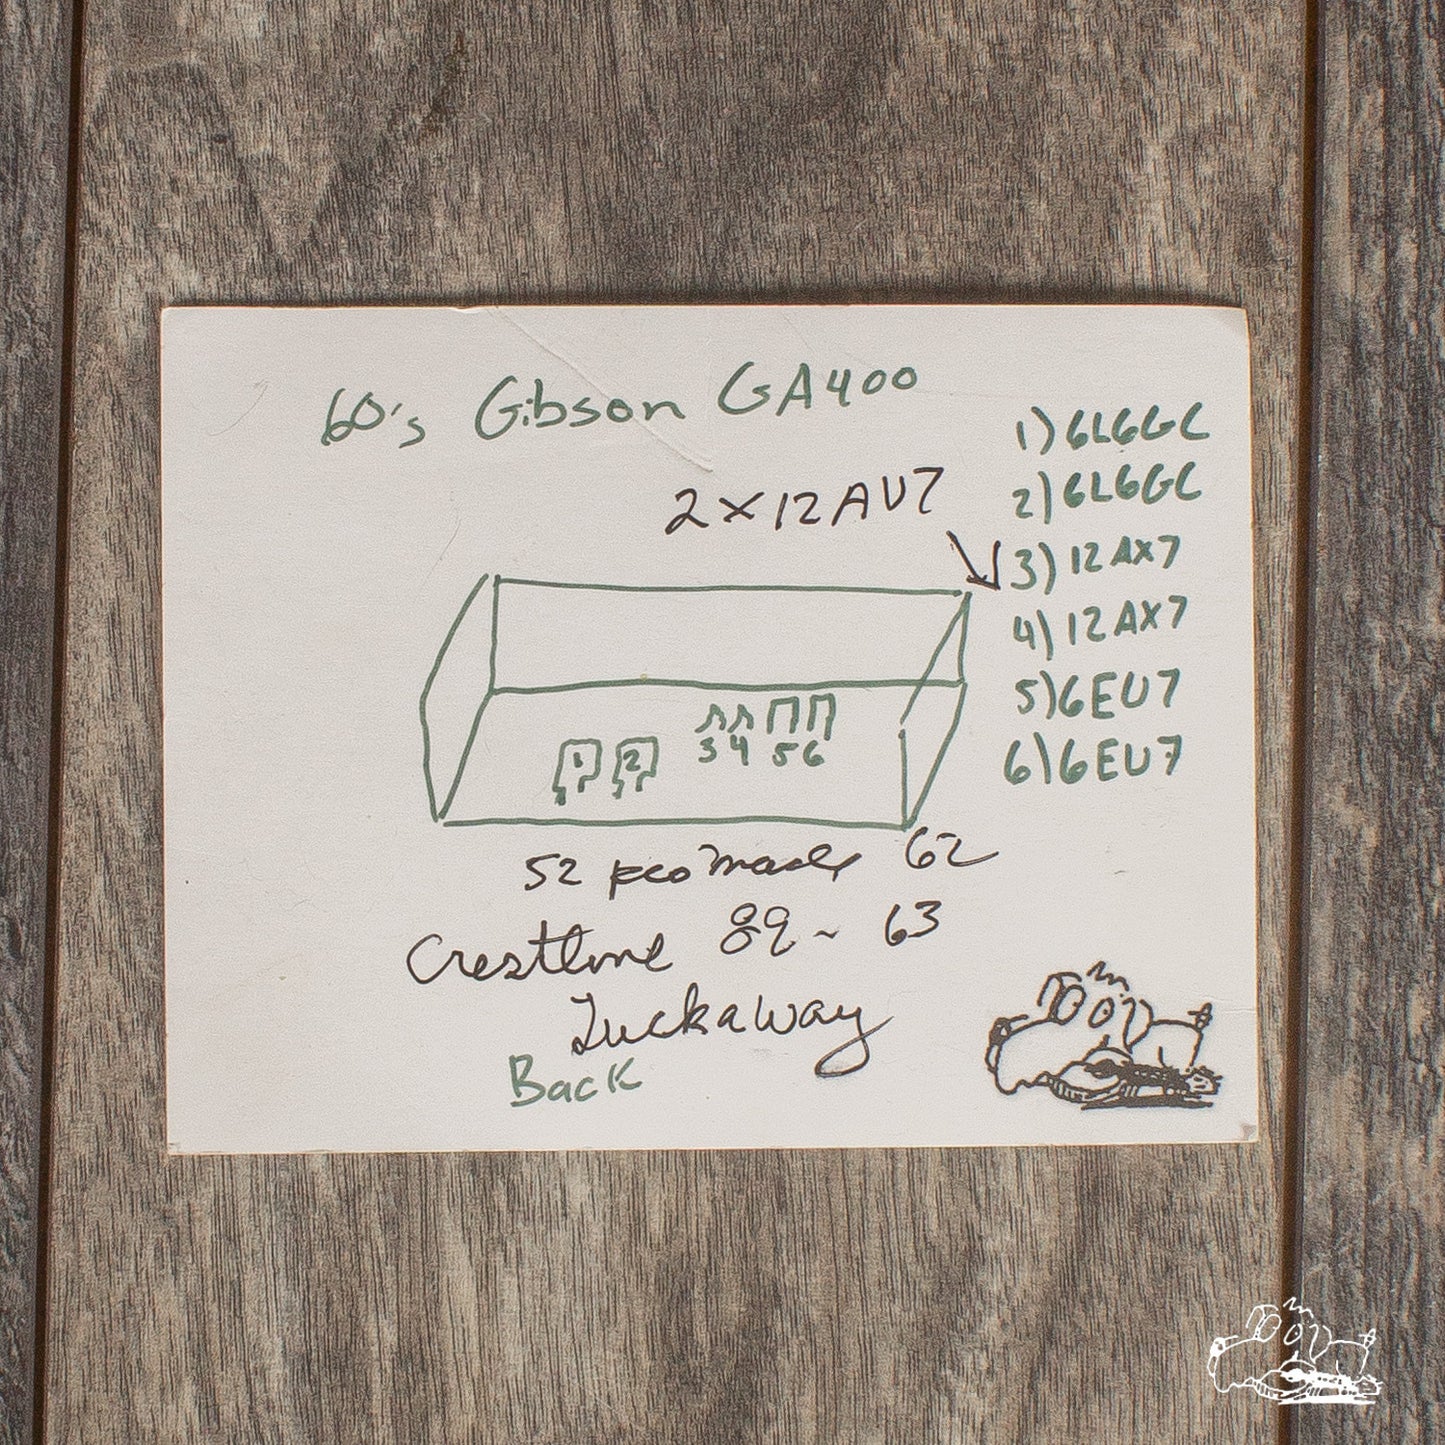 60's Gibson GA400
1) 6L6GC
2) 6L6GC
2 x 12AU7
3) 12AX7
4) 12AX7
5) 6EU7
6) 6EU7
1 2 3 4 5 6
52 pcs made 62
Crestline 89 ~ 63
Tuckaway
Back